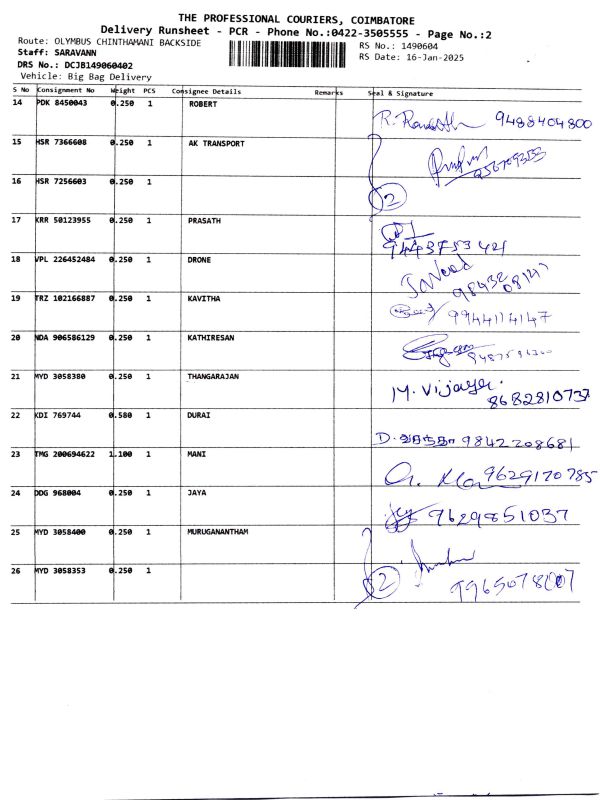 THE PROFESSIONAL COURIERS, COIMBATORE
Delivery Runsheet - PCR - Phone No.:0422-3505555 - Page No.:2
Route: OLYMBUS CHINTHAMANI BACKSIDE
RS No.: 1490604
Staff: SARAVANN
RS Date: 16-Jan-2025
DRS No.: DCJB149060402
Vehicle: Big Bag Delivery
S No Consignment No Weight PCS Consignee Details Remarks Seal & Signature
14 PDK 8450043 0.250 1 ROBERT 9488404800
15 HSR 7366608 0.250 1 AK TRANSPORT
16 HSR 7256603 0.250 1 2
17 KRR 50123955 0.250 1 PRASATH 9443753421
18 VPL 226452484 0.250 1 DRONE
19 TRZ 102166887 0.250 1 KAVITHA 9944114147
20 NDA 906586129 0.250 1 KATHIRESAN
21 MYD 3058380 0.250 1 THANGARAJAN M. Vijaya 8682810737
22 KDI 769744 0.580 1 DURAI D. 9842208681
23 TMG 200694622 1.100 1 MANI 9629170785
24 DDG 968004 0.250 1 JAYA 9629851037
25 MYD 3058400 0.250 1 MURUGANANTHAM
26 MYD 3058353 0.250 1 2